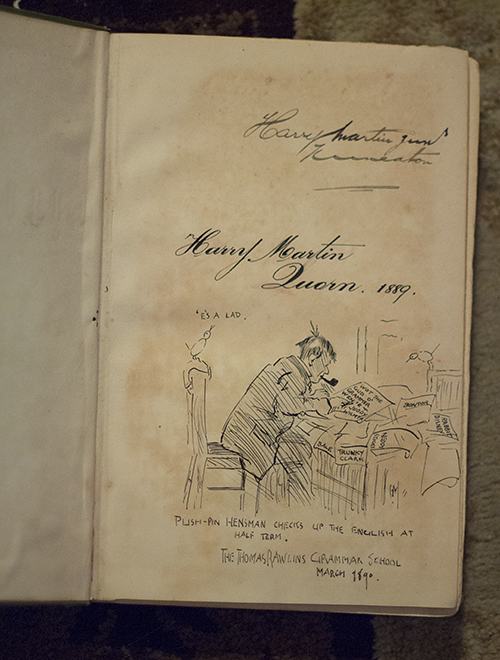 Harry Martin junr
Nuneaton
Harry Martin
Quorn. 1889.
'E'S A LAD.
NOT THE
GRAMMAR
TRUNKY
CLARK
PUSH-PIN HENSMAN CHECKS UP THE ENGLISH AT
HALF TERM.
THE THOMAS RAWLINS GRAMMAR SCHOOL
MARCH 1890.